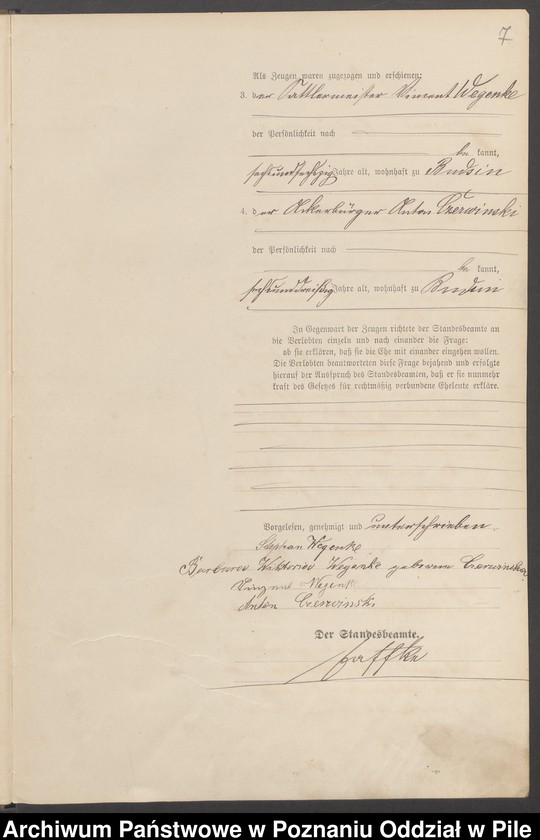 7
Als Zeugen waren zugezogen und erschienen:
3. der Sattlermeister Vincent Wegenke
der Persönlichkeit nach
be kannt,
sechsundsechzig Jahre alt, wohnhaft zu Budsin
4. der Ackerbürger Anton Czerwinski
der Persönlichkeit nach
be kannt,
sechsunddreißig Jahre alt, wohnhaft zu Budsin
In Gegenwart der Zeugen richtete der Standesbeamte an
die Verlobten einzeln und nach einander die Frage:
ob sie erklären, daß sie die Ehe mit einander eingehen wollen.
Die Verlobten beantworteten diese Frage bejahend und erfolgte
hierauf der Ausspruch des Standesbeamten, daß er sie nunmehr
kraft des Gesetzes für rechtmäßig verbundene Eheleute erkläre.
Vorgelesen, genehmigt und unterschrieben.
Stephan Wegenke
Barbara Wiktoria Wegenke geborene Czerwinska
Wegenke
Anton Czerwinski
Der Standesbeamte.
Archiwum Państwowe w Poznaniu Oddział w Pile